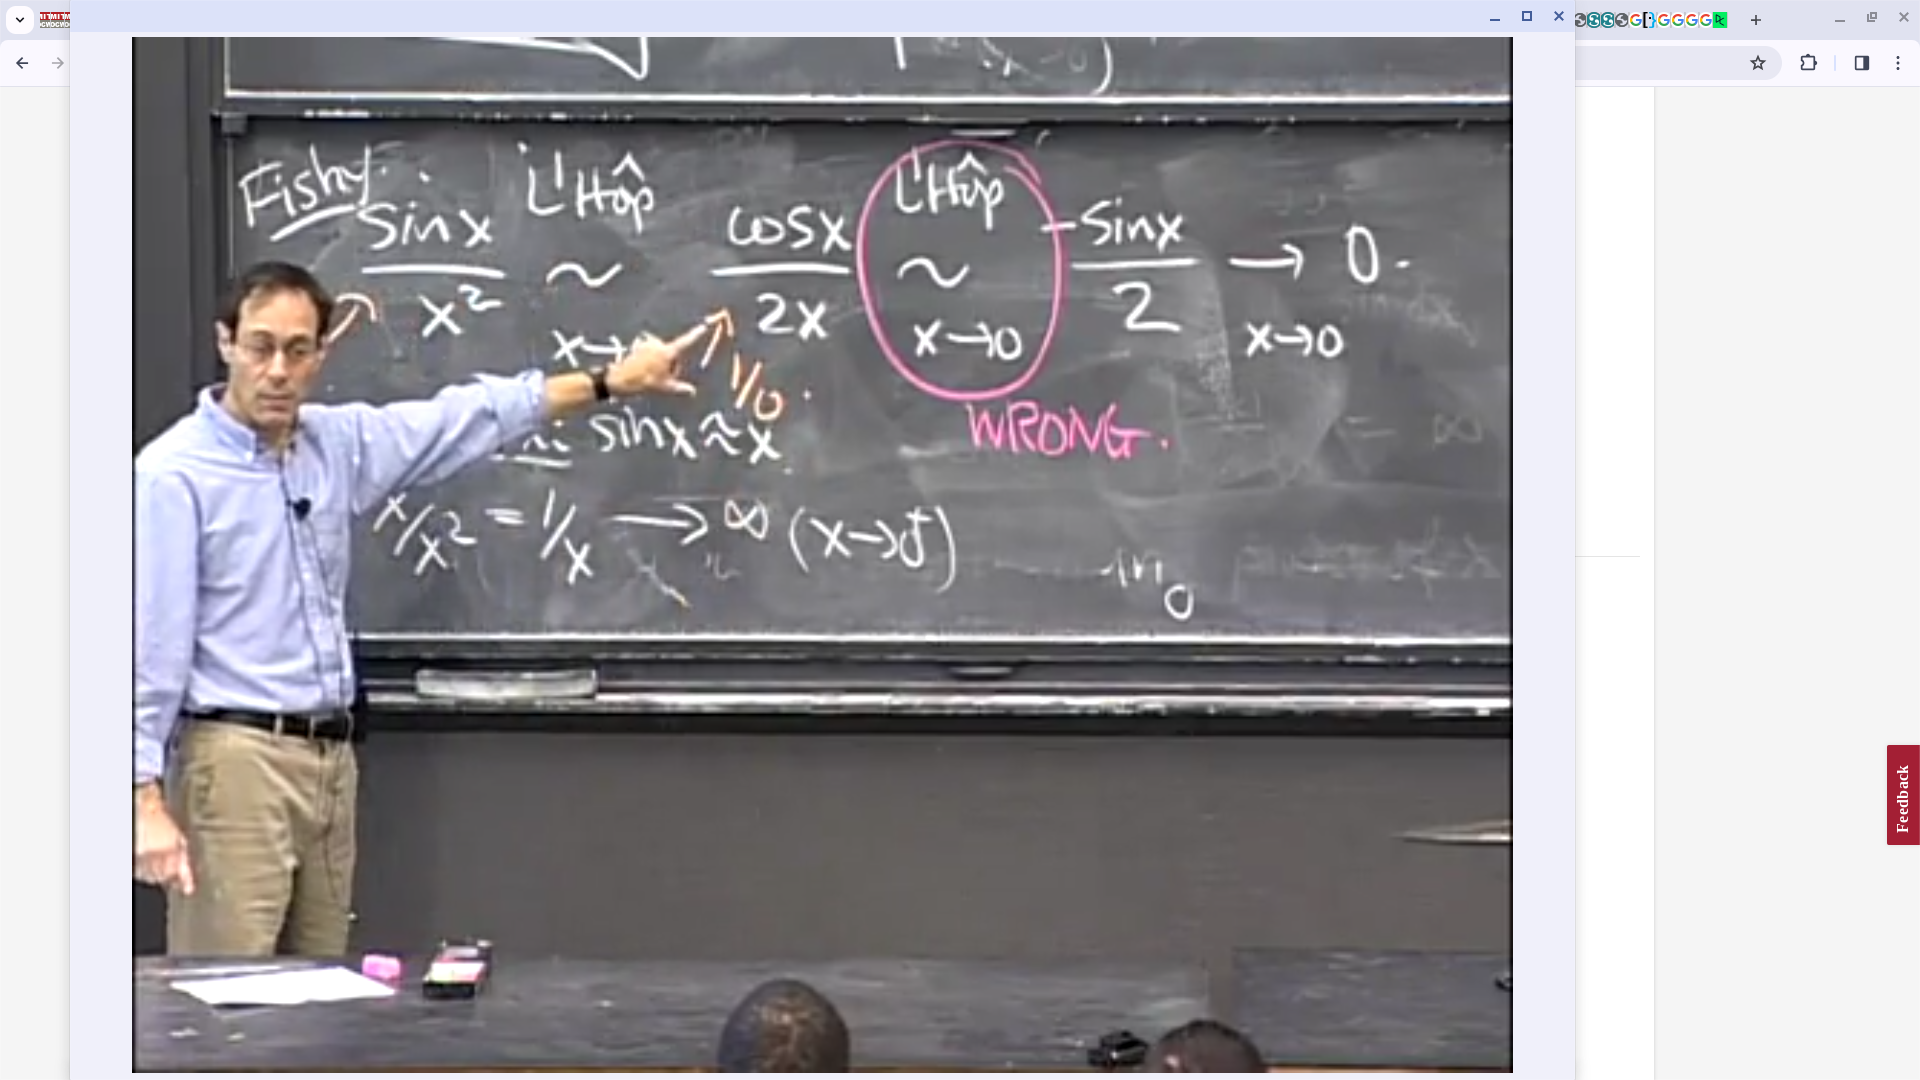 Fishy.
sin x / x² ~ L'Hôp x→ cos x / 2x ~ L'Hôp x→0 -sin x / 2 → 0. x→0
1/0.
WRONG.
sin x ≈ x
x/x² = 1/x → ∞ (x→0⁺)
Feedback